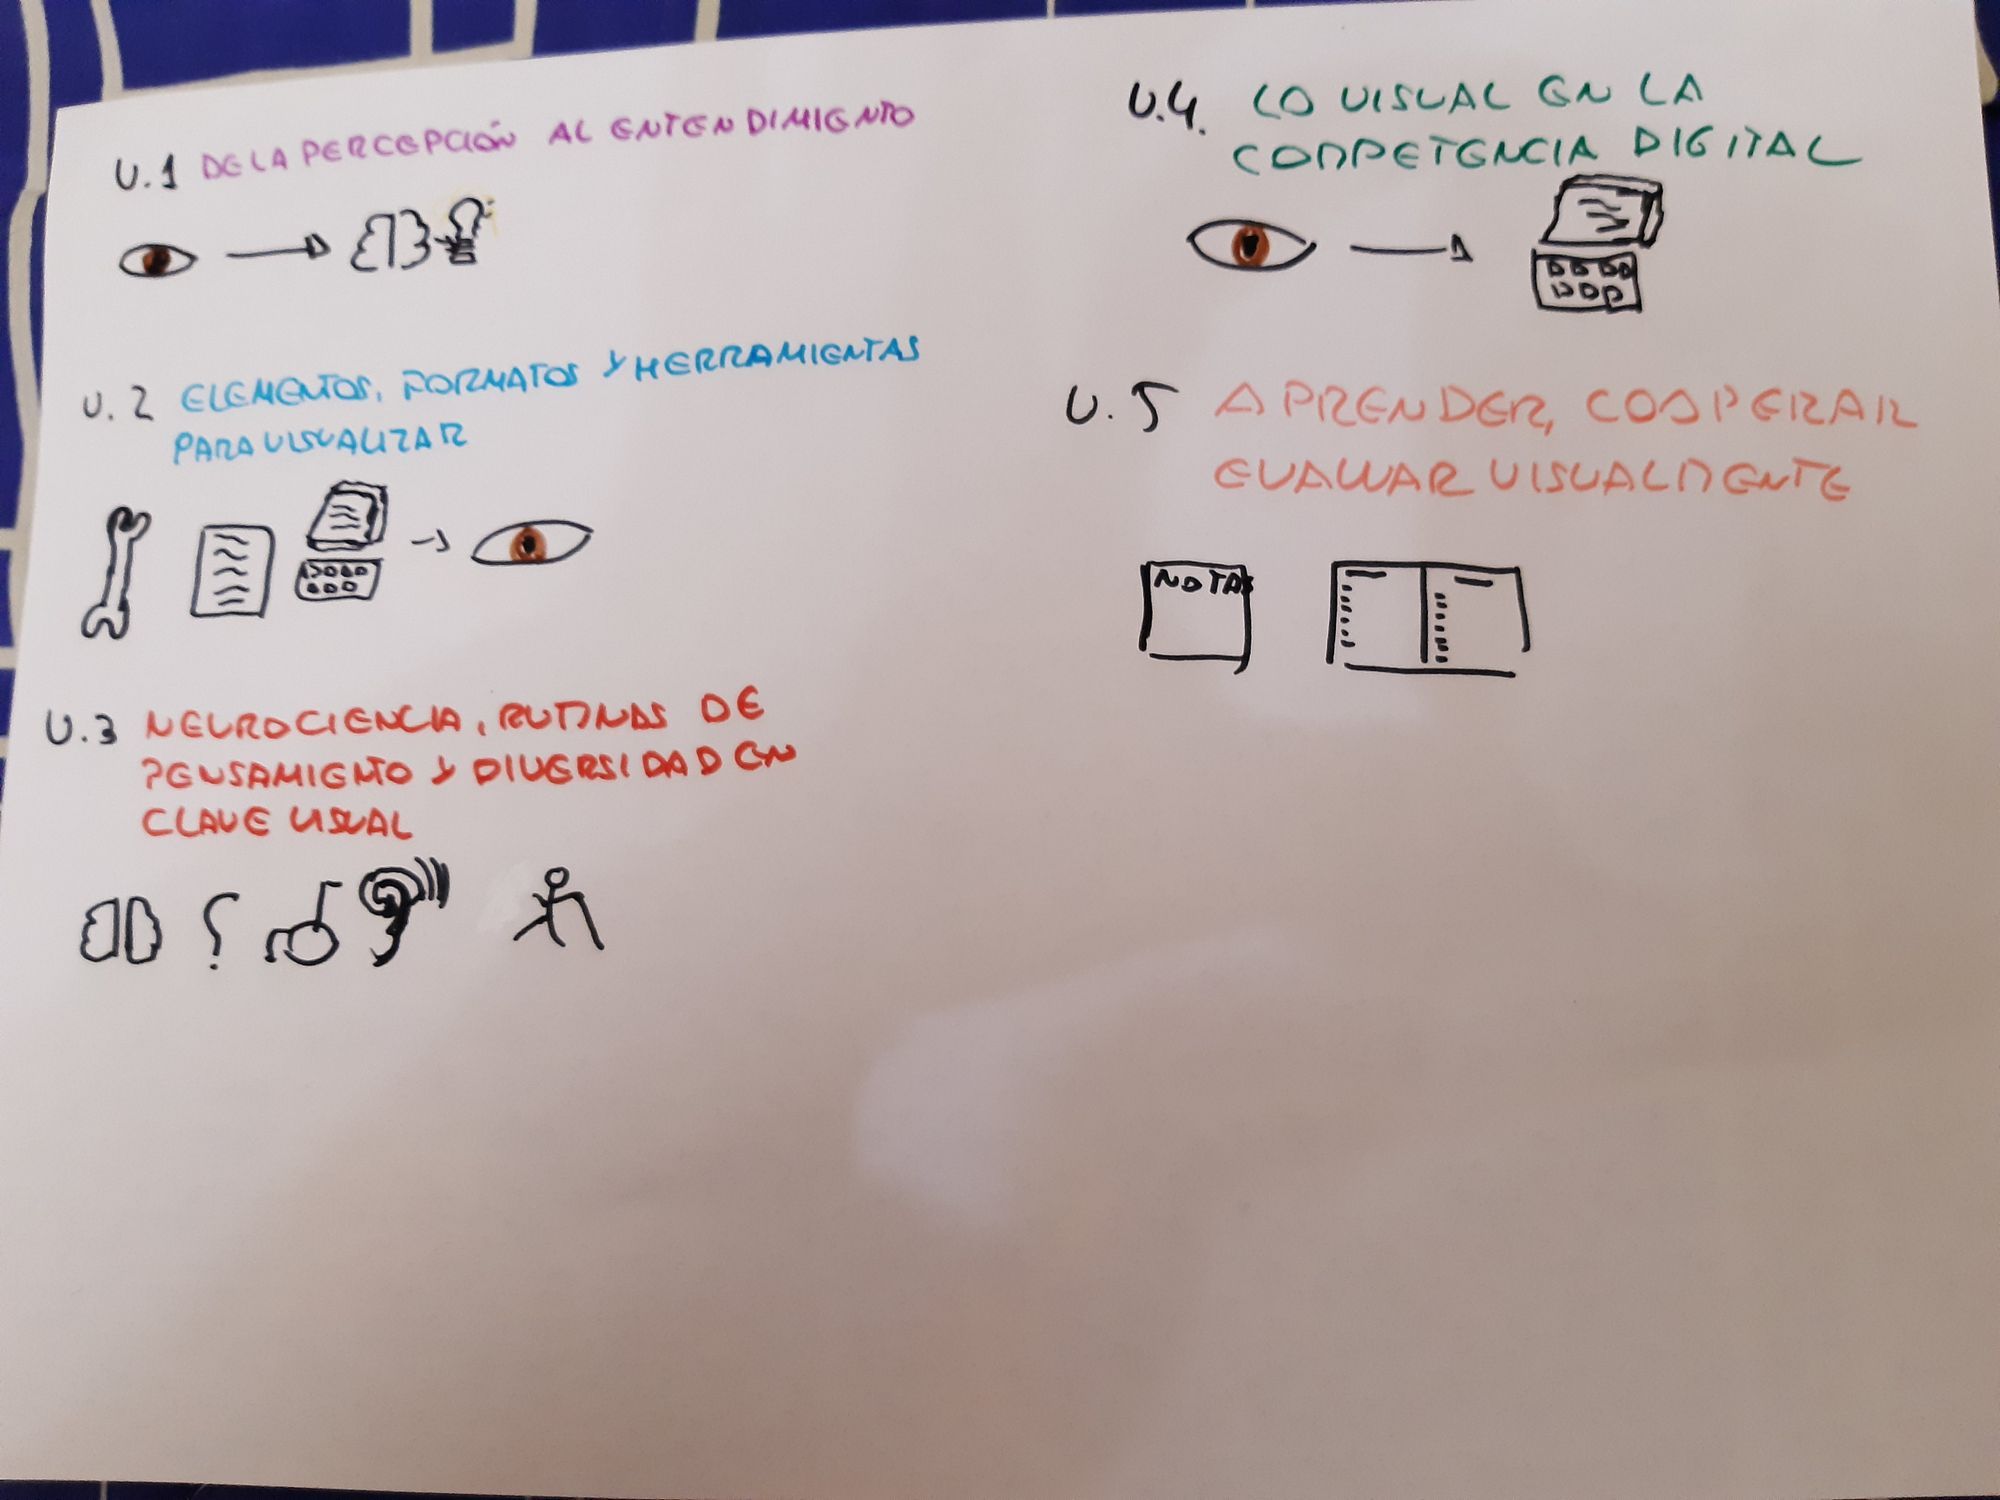 U.1 DE LA PERCEPCIÓN AL ENTENDIMIENTO
U.2 ELEMENTOS, FORMATOS Y HERRAMIENTAS
PARA VISUALIZAR
U.3 NEUROCIENCIA, RUTINAS DE
PENSAMIENTO Y DIVERSIDAD EN
CLAVE VISUAL
U.4. LO VISUAL EN LA
COMPETENCIA DIGITAL
U.5 APRENDER, COOPERAR
EVALUAR VISUALMENTE
NOTAS